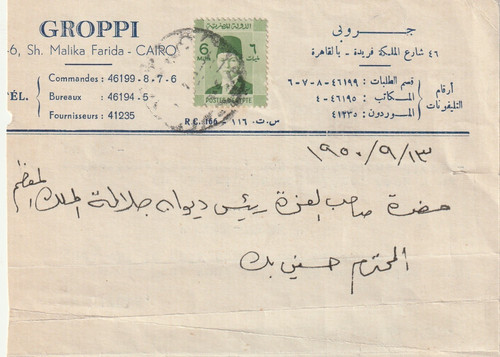 GROPPI
جروبى
-6, Sh. Malika Farida - CAIRO
٤٦ شارع الملكة فريدة - بالقاهرة
TÉL.
Commandes : 46199-8-7-6
Bureaux : 46194-5
Fournisseurs : 41235
أرقام التليفونات
قسم الطلبات : ٤٦١٩٩-٨-٧-٦
المكاتب : ٤٦١٩٥-٤
الموردون : ٤١٢٣٥
R.C. 166 - ١١٦ س.ت.
6
MILLS
٦
POSTES D'EGYPTE
١٩٥٠/٩/١٣
حضرة صاحب العزة رئيس ديوان جلالة الملك المعظم
المحترم حسني بك